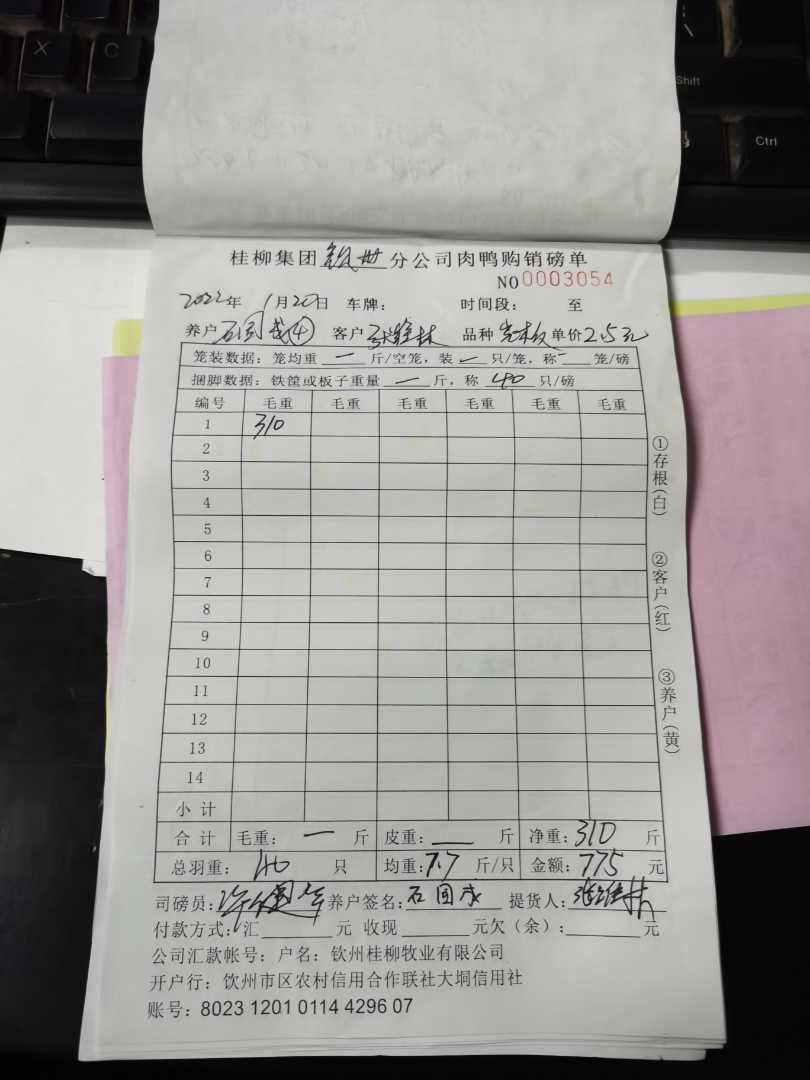 X C
Shift
Ctrl
桂柳集团 钦州 分公司肉鸭购销磅单
NO 0003054
2022年 1月20日 车牌: 时间段: 至
养户 石国成④ 客户 张维林 品种 单价 2.5元
笼装数据: 笼均重 一 斤/空笼, 装 一 只/笼, 称 笼/磅
捆脚数据: 铁筐或板子重量 一 斤, 称 40 只/磅
编号 毛重 毛重 毛重 毛重 毛重 毛重
1 310
2
3
4
5
6
7
8
9
10
11
12
13
14
小计
合计 毛重: 一 斤 皮重: 斤 净重: 310 斤
总羽重: 40 只 均重: 7.7 斤/只 金额: 775 元
司磅员: 养户签名: 石国成 提货人: 张维林
付款方式: 汇 元 收现 元欠(余): 元
公司汇款帐号: 户名: 钦州桂柳牧业有限公司
开户行: 钦州市区农村信用合作联社大垌信用社
账号: 8023 1201 0114 4296 07
①存根(白)
②客户(红)
③养户(黄)